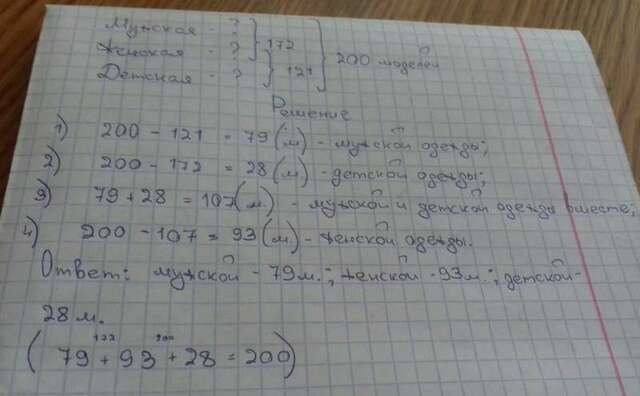 Мужская - ?
Женская - ? 172
Детская - ? 121 200 моделей
Решение
1) 200 - 121 = 79 (м) - мужской одежды;
2) 200 - 172 = 28 (м) - детской одежды;
3) 79 + 28 = 107 (м) - мужской и детской одежды вместе;
4) 200 - 107 = 93 (м) - женской одежды.
Ответ: мужской - 79 м.; женской - 93 м.; детской -
28 м.
172 200
( 79 + 93 + 28 = 200)